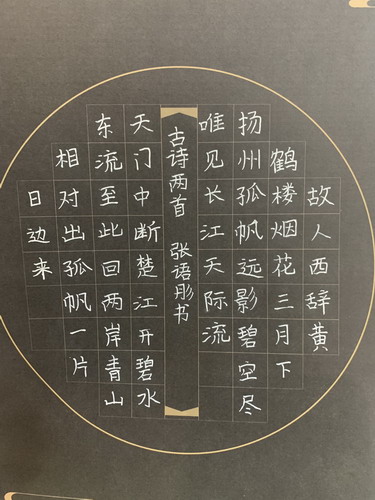 故人西辞黄
鹤楼烟花三月下
扬州孤帆远影碧空尽
唯见长江天际流
古诗两首 张语彤书
天门中断楚江开碧水
东流至此回两岸青山
相对出孤帆一片
日边来